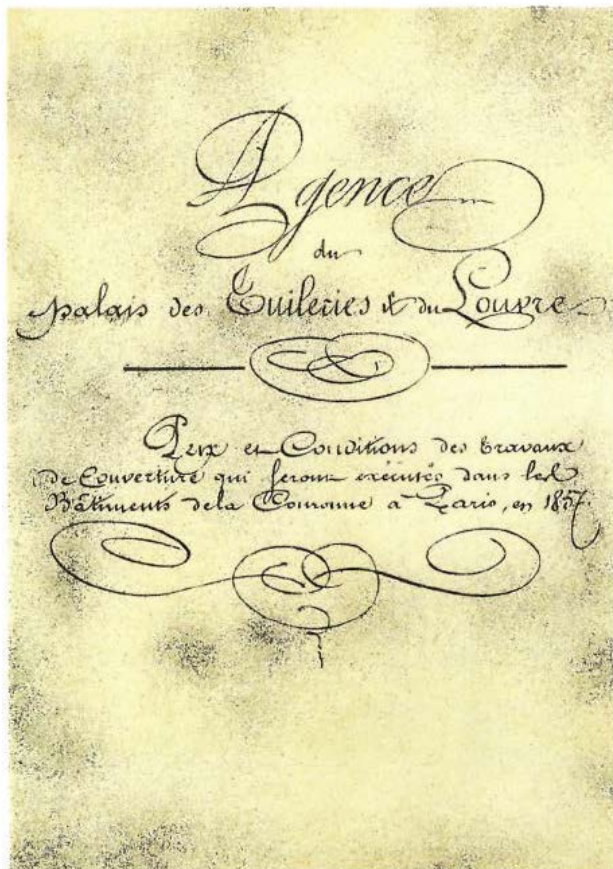 Agence
du
palais des Tuileries et du Louvre
Prix et Conditions des travaux
de Couverture qui seront exécutés dans les
Bâtiments de la Couronne à Paris, en 1857.